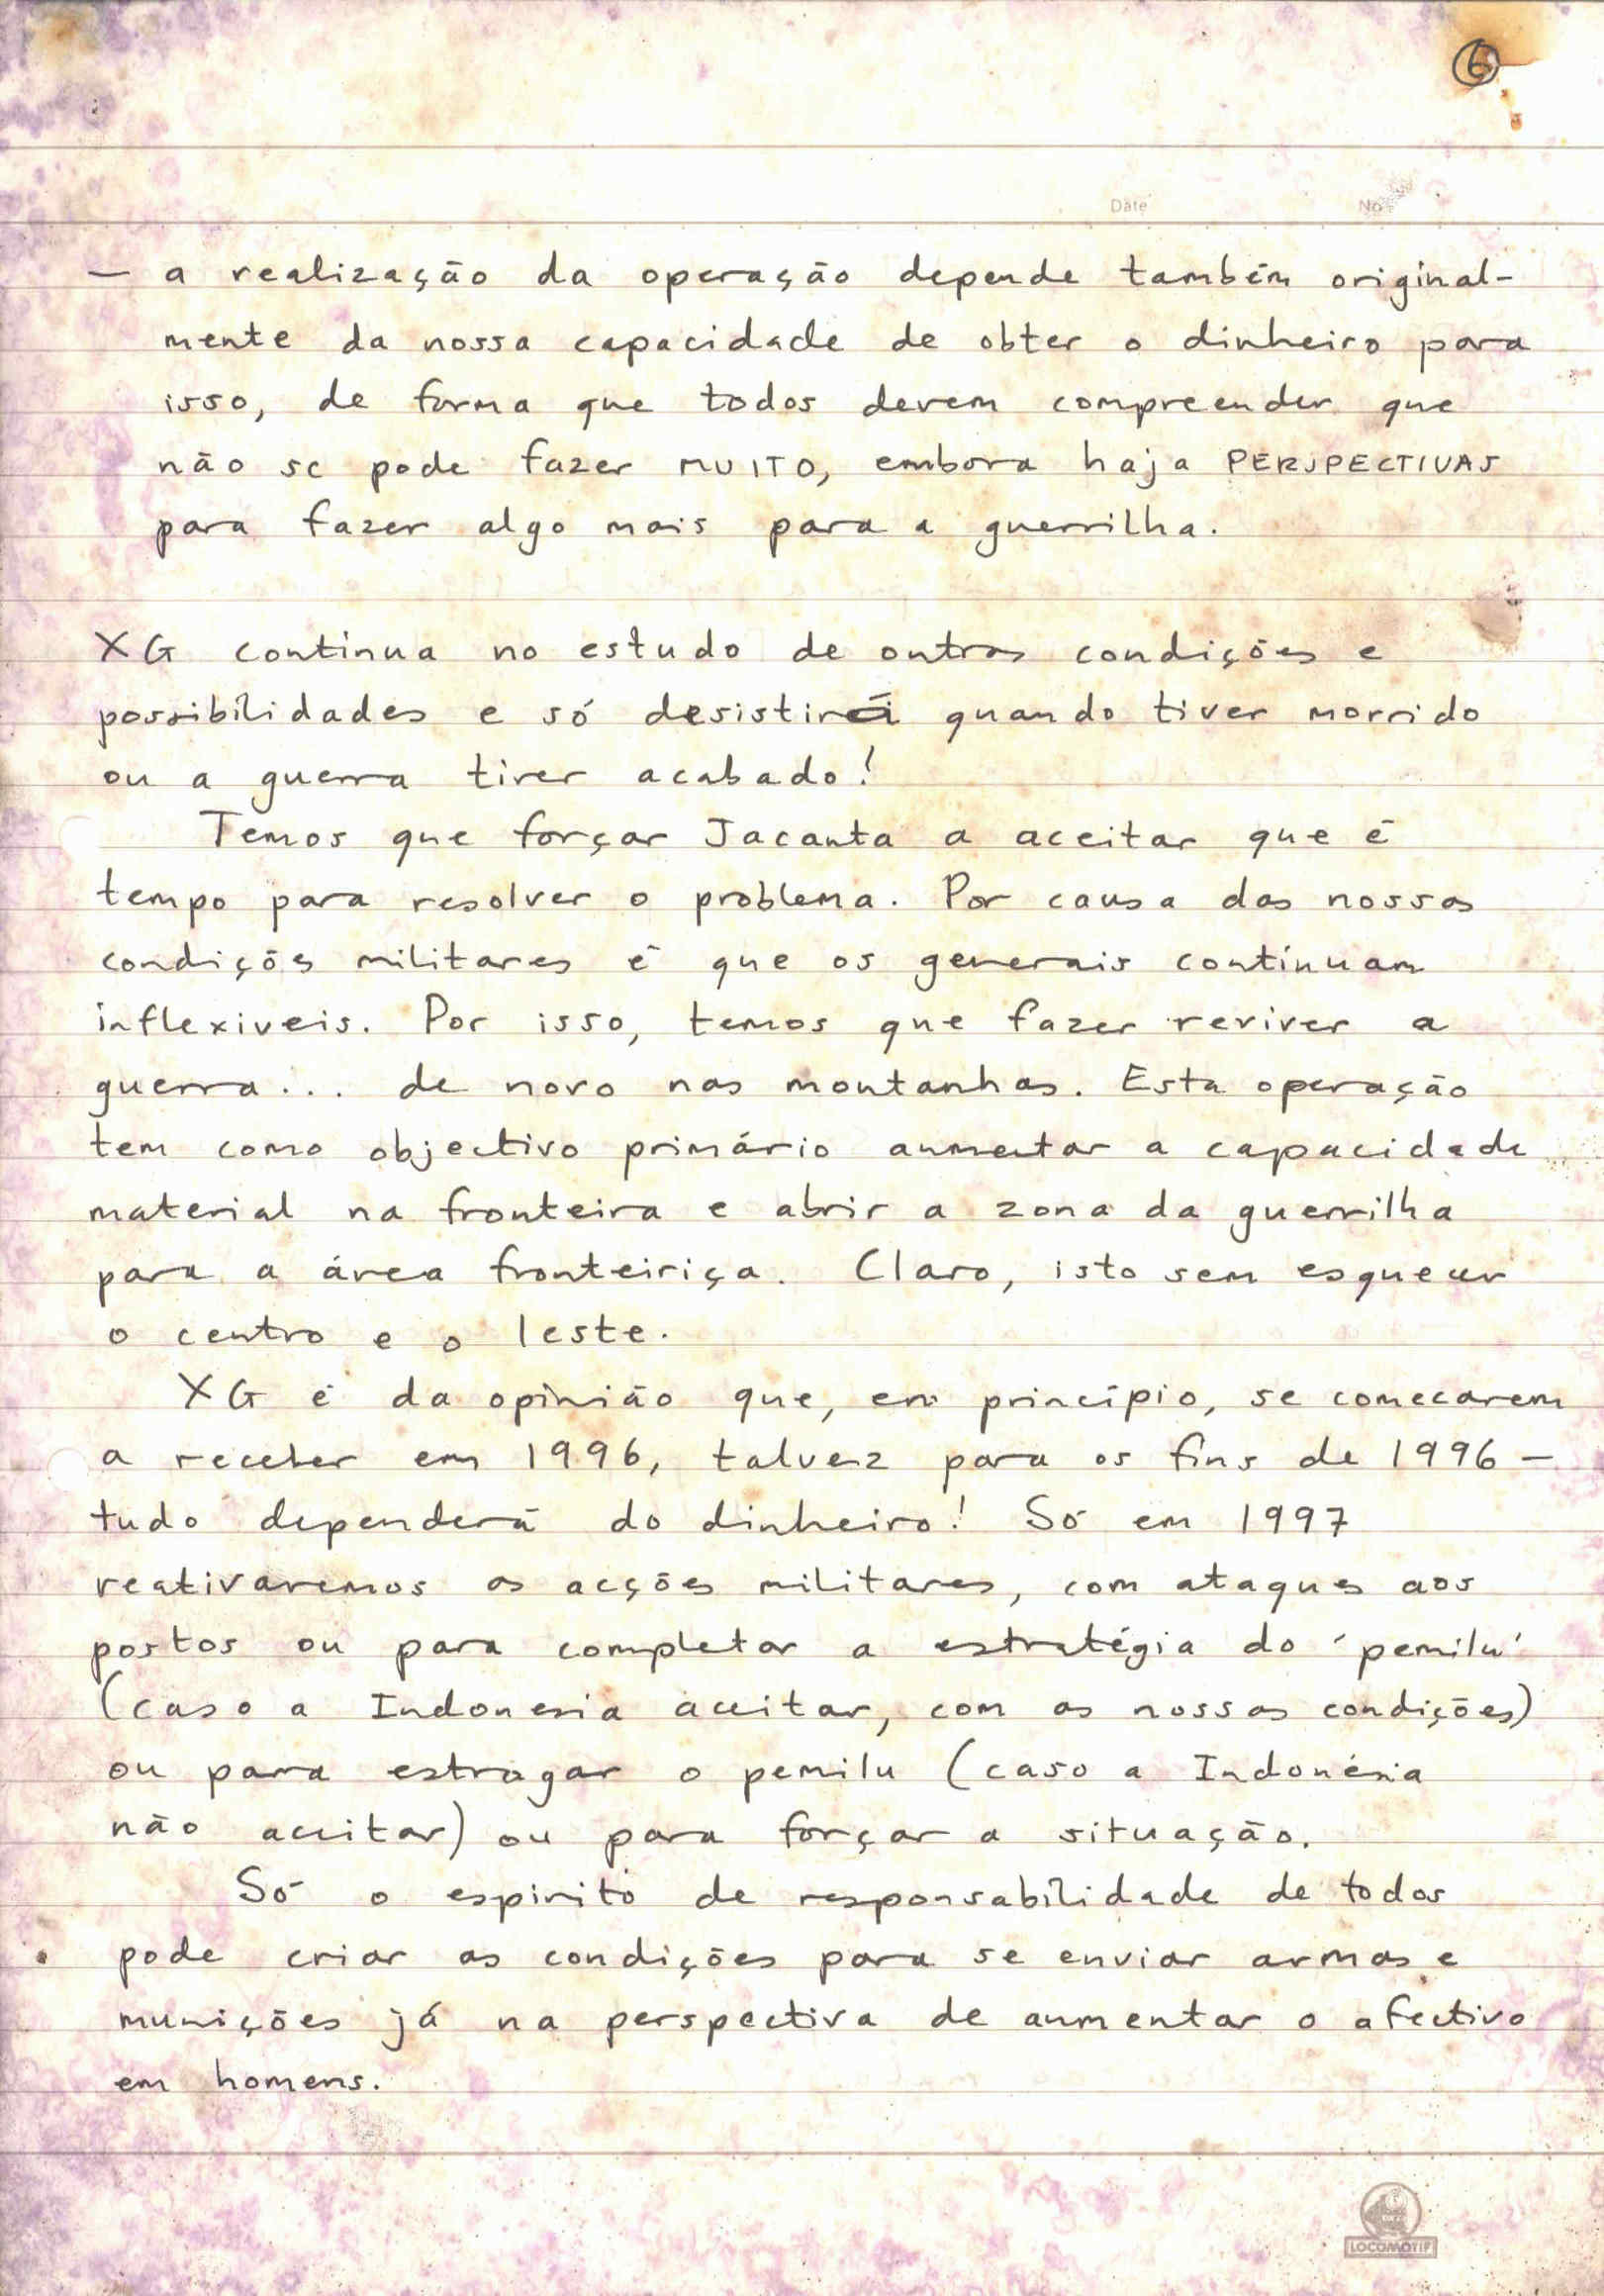 6
Date No
— a realização da operação depende também original-
mente da nossa capacidade de obter o dinheiro para
isso, de forma que todos devem compreender que
não se pode fazer MUITO, embora haja PERSPECTIVAS
para fazer algo mais para a guerrilha.
XG continua no estudo de outras condições e
possibilidades e só desistirá quando tiver morrido
ou a guerra tiver acabado!
Temos que forçar Jacanta a aceitar que é
tempo para resolver o problema. Por causa das nossas
condições militares é que os generais continuam
inflexiveis. Por isso, temos que fazer reviver a
guerra... de novo nas montanhas. Esta operação
tem como objectivo primário aumentar a capacidade
material na fronteira e abrir a zona da guerrilha
para a área fronteiriça. Claro, isto sem esquecer
o centro e o leste.
XG é da opinião que, em princípio, se comecarem
a receber em 1996, talvez para os fins de 1996 —
tudo dependerá do dinheiro! Só em 1997
reativaremos as acções militares, com ataques aos
postos ou para completar a estratégia do 'pemilu'
(caso a Indonesia aceitar, com as nossas condições)
ou para estragar o pemilu (caso a Indonésia
não aceitar) ou para forçar a situação.
Só o espirito de responsabilidade de todos
pode criar as condições para se enviar armas e
munições já na perspectiva de aumentar o afectivo
em homens.
LOCOMOTIF